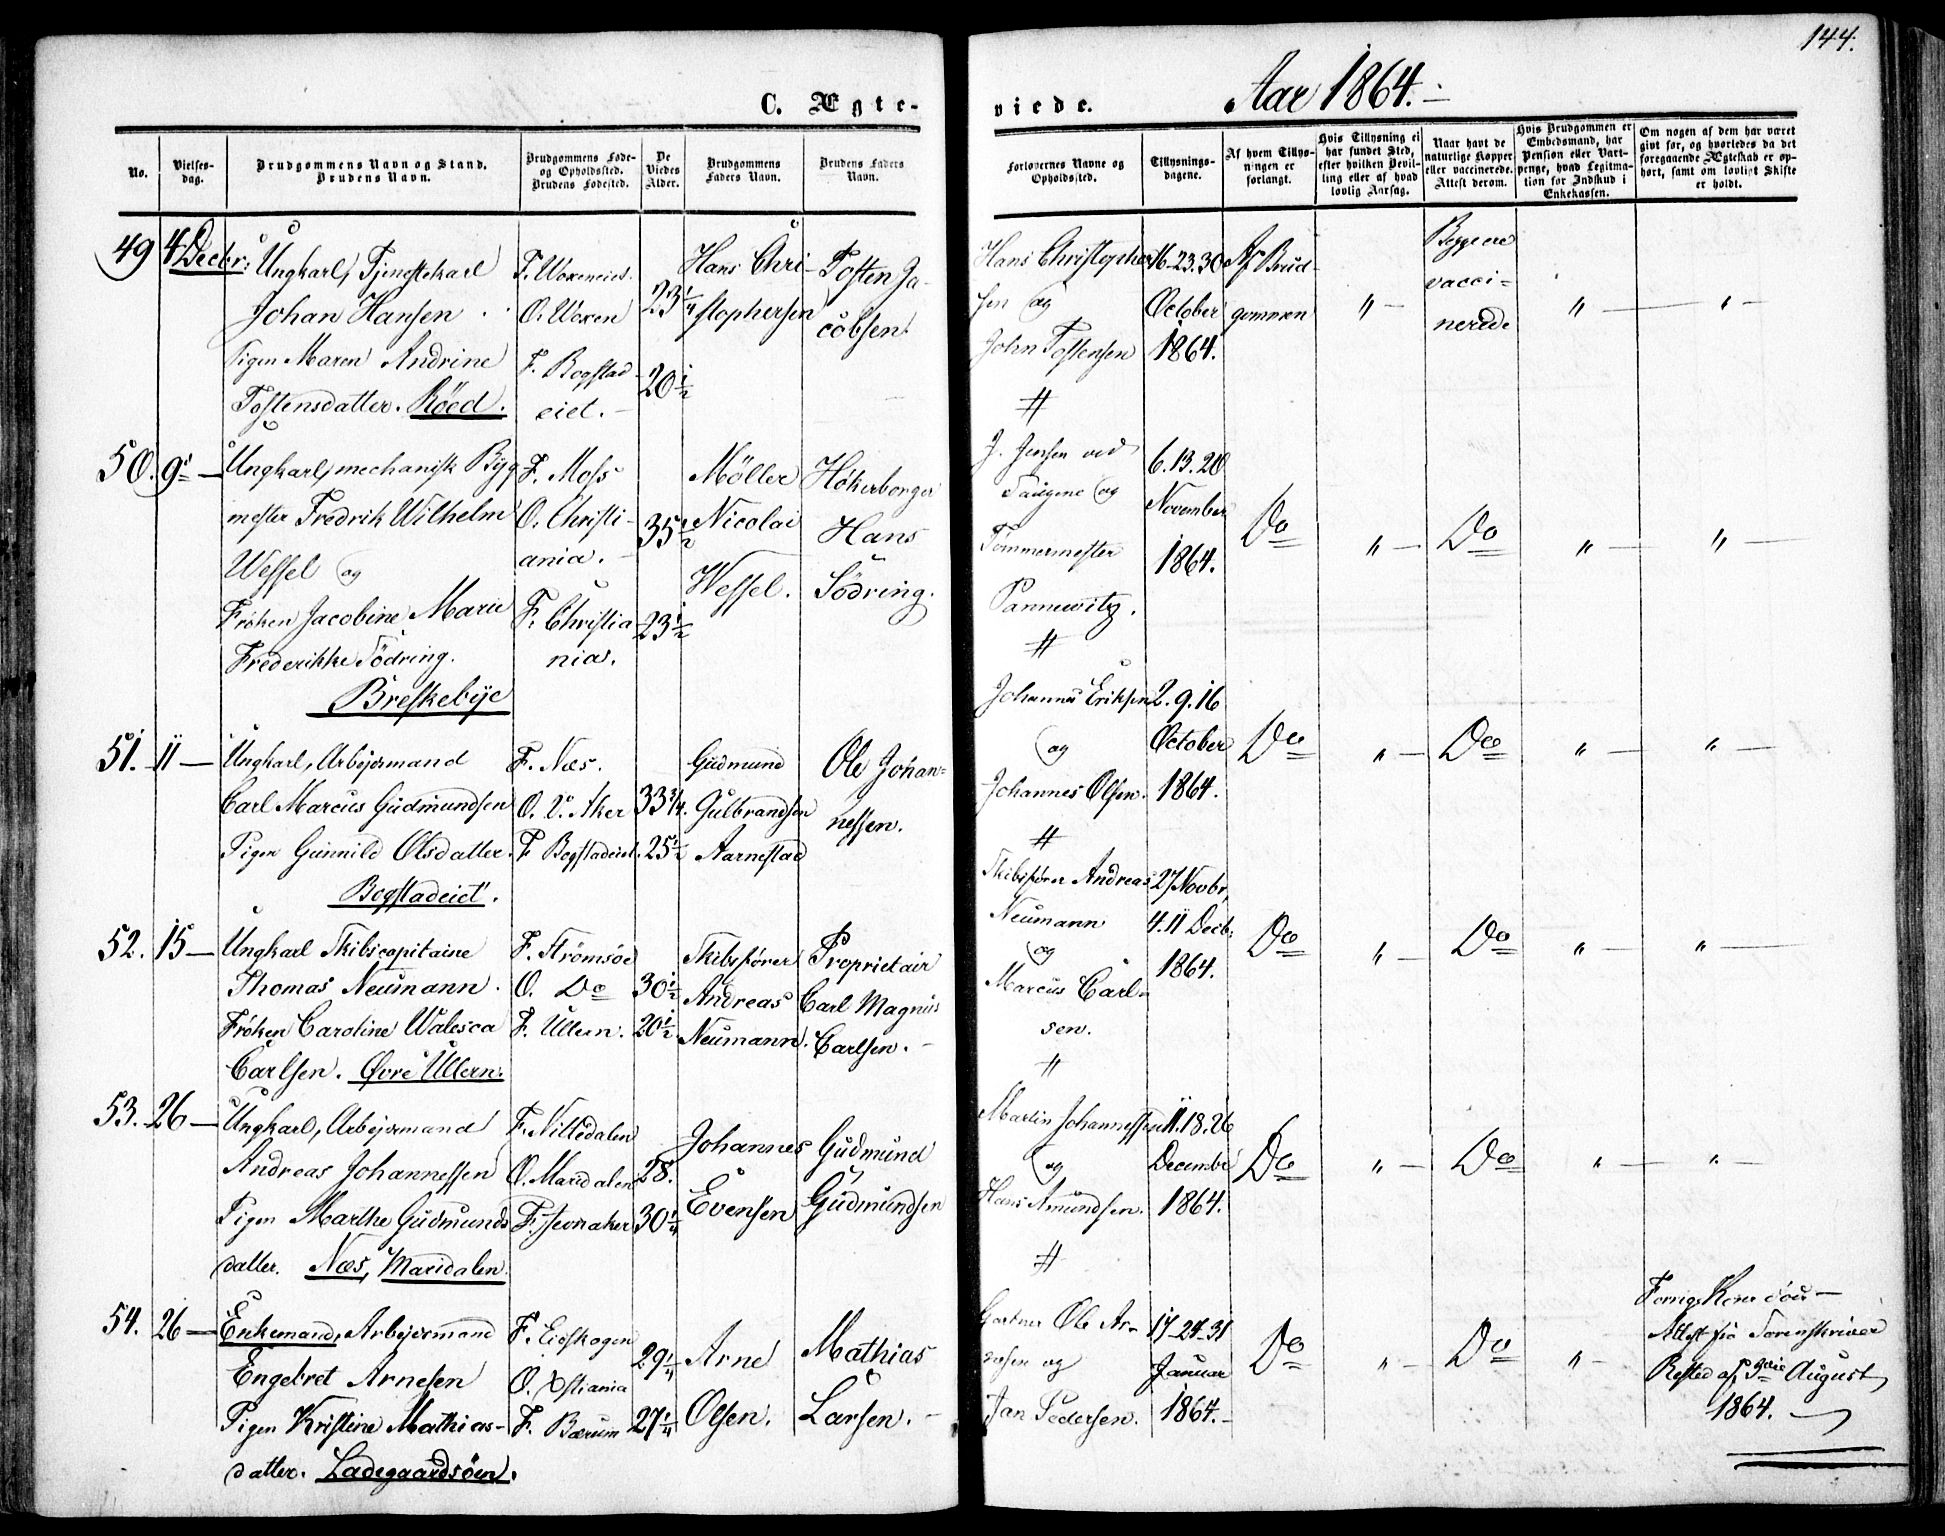 144.
C. Ægte-
viede.
Aar 1864.
No.
Vielses-
dag.
Brudgommens Navn og Stand.
Brudens Navn.
Brudgommens Føde-
og Opholdssted.
Brudens Fødested.
De
Viedes
Alder.
Brudgommens
Faders Navn.
Brudens Faders
Navn.
Forlovernes Navne og
Opholdssted.
Tillysnings-
dagene.
Af hvem Tillys-
ningen er
forlangt.
Hvis Tillysning ei
har fundet Sted,
efter hvilken Bevil-
ling eller af hvad
lovlig Aarsag.
Naar havt de
naturlige Kopper
eller vaccinerede.
Attest derom.
Hvis Brudgommen er
Embedsmand, har
Pension eller Vart-
penge, hvad Legitima-
tion for Indskud i
Enkekassen.
Om nogen af dem har været
givt før, og hvorledes da det
foregaaende Ægteskab er op-
hørt, samt om lovligt Skifte
er holdt.
49
4 Decbr:
Ungkarl, Tjenestekarl
Johan Hansen
Pigen Maren Andrine
Tostensdatter. Röed.
F. Woxeneiet.
O. Woxen
F. Bogstad-
eiet.
23 1/4
20 1/2
Hans Chri-
stophersen
Tosten Ja-
cobsen.
Hans Christopher-
sen og
John Tostensen
16-23.30
October
1864.
Af Brud-
gommen
" -
Begge ere
vacci-
nerede
" -
" -
50.
9 -
Ungkarl, mechanisk Byg-
mester Fredrik Wilhelm
Wessel og
Frøken Jacobine Marie
Frederikke Södring.
Breskebye
F. Moss
O. Christi-
ania.
F. Christia
nia.
35 1/2
23 1/2
Möller
Nicolai
Wessel.
Hökerborger
Hans
Södring.
J. Jensen ved
Saugene og
Tömmermester
Pannewitz.
6.13.20
November
1864.
Do
" -
Do
" -
" -
51.
11 -
Ungkarl, Arbejdsmand
Carl Marcus Gudmundsen
Pigen Gunnild Olsdatter.
Bogstadeiet.
F. Næs.
O. V. Aker
F. Bogstadeiet.
33 3/4.
25 1/2
Gudmund
Gulbrandsen
Aarnestad
Ole Johan-
nessen.
Johannes Eriksen
og
Johannes Olsen.
2.9.16
October
1864.
Do
" -
Do
" -
" -
52.
15 -
Ungkarl Skibscapitaine
Thomas Neumann.
Frøken Caroline Walesca
Carlsen. Øvre Ullern.
F. Strömsöe
O. Do
F. Ullern.
30 1/2
20 1/2.
Skibsfører
Andreas
Neumann.
Proprietair
Carl Magnus
Carlsen.
Skibsfører Andreas
Neumann
og
Marcus Carl-
sen.
27 Novbr,
4.11 Decb:
1864.
Do
" -
Do
" -
" -
53.
26 -
Ungkarl, Arbejdsmand
Andreas Johannessen
Pigen Marthe Gudmunds
datter. Næs, Maridalen.
F. Nittedalen
O. Maridalen
28.
30 1/4
Johannes
Evensen
Gudmund
Gudmundsen
Martin Johannessen
og
Hans Amundsen.
11.18.26
Decembr
1864.
Do
" -
Do
" -
" -
54.
26 -
Enkemand, Arbejdsmand
Engebret Arnesen
Pigen Kristine Mathias-
datter. Ladegaardsöen.
F. Eidskogen
O. Xstiania
F. Bærum
29 1/4
27 1/4
Arne
Olsen.
Mathias
Larsen.
Gartner Ole Ar-
nesen og
Jan Pedersen.
17-24-31
Januar
1864.
Do
" -
Do
" -
Attest fra Sorenskriver
August
1864.